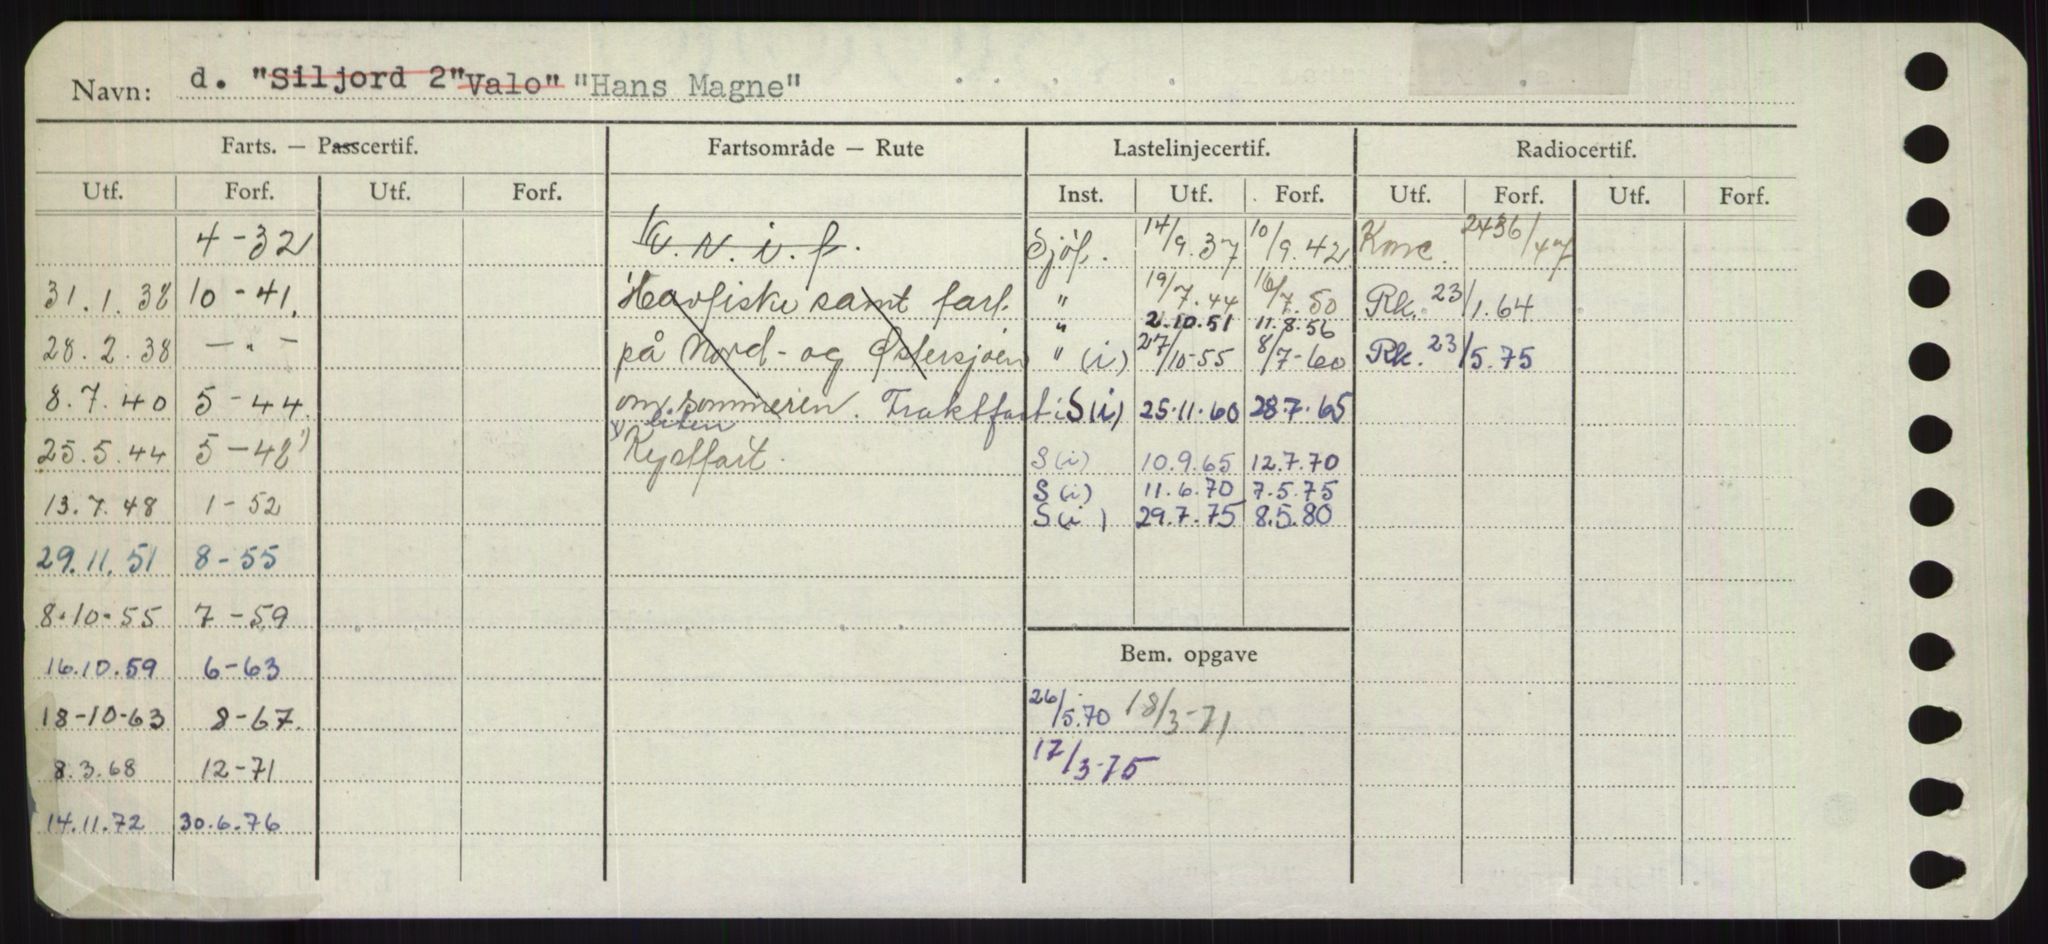 Navn: d. "Siljord 2" Valo" "Hans Magne"
Farts. — Passcertif. Fartsområde — Rute Lastelinjecertif. Radiocertif.
Utf. Forf. Utf. Forf. Inst. Utf. Forf. Utf. Forf. Utf. Forf.
4-32 K. N. i. f. Sjöf. 14/9.37 10/9.42 Konc. 2436/47
31.1.38 10-41. Havfiske samt fart " 19/7.44 16/7.50 Rk. 23/1.64
" 2.10.51 11.8.56
28.2.38 — " — på Nord- og Østersjøen " (i) 27/10-55 8/7-60 Rk. 23/5.75
8.7.40 5-44. om sommeren. Fraktfart i S(i) 25.11.60 28.7.65
liten
25.5.44 5-48') Kystfart. S(i) 10.9.65 12.7.70
S(i) 11.6.70 7.5.75
13.7.48 1-52 S(i) 29.7.75 8.5.80
29.11.51 8-55
8.10-55 7-59
16.10.59 6-63 Bem. opgave
18-10-63 8-67. 26/5.70 18/3-71
8.3.68 12-71 17/3-75
14.11.72 30.6.76